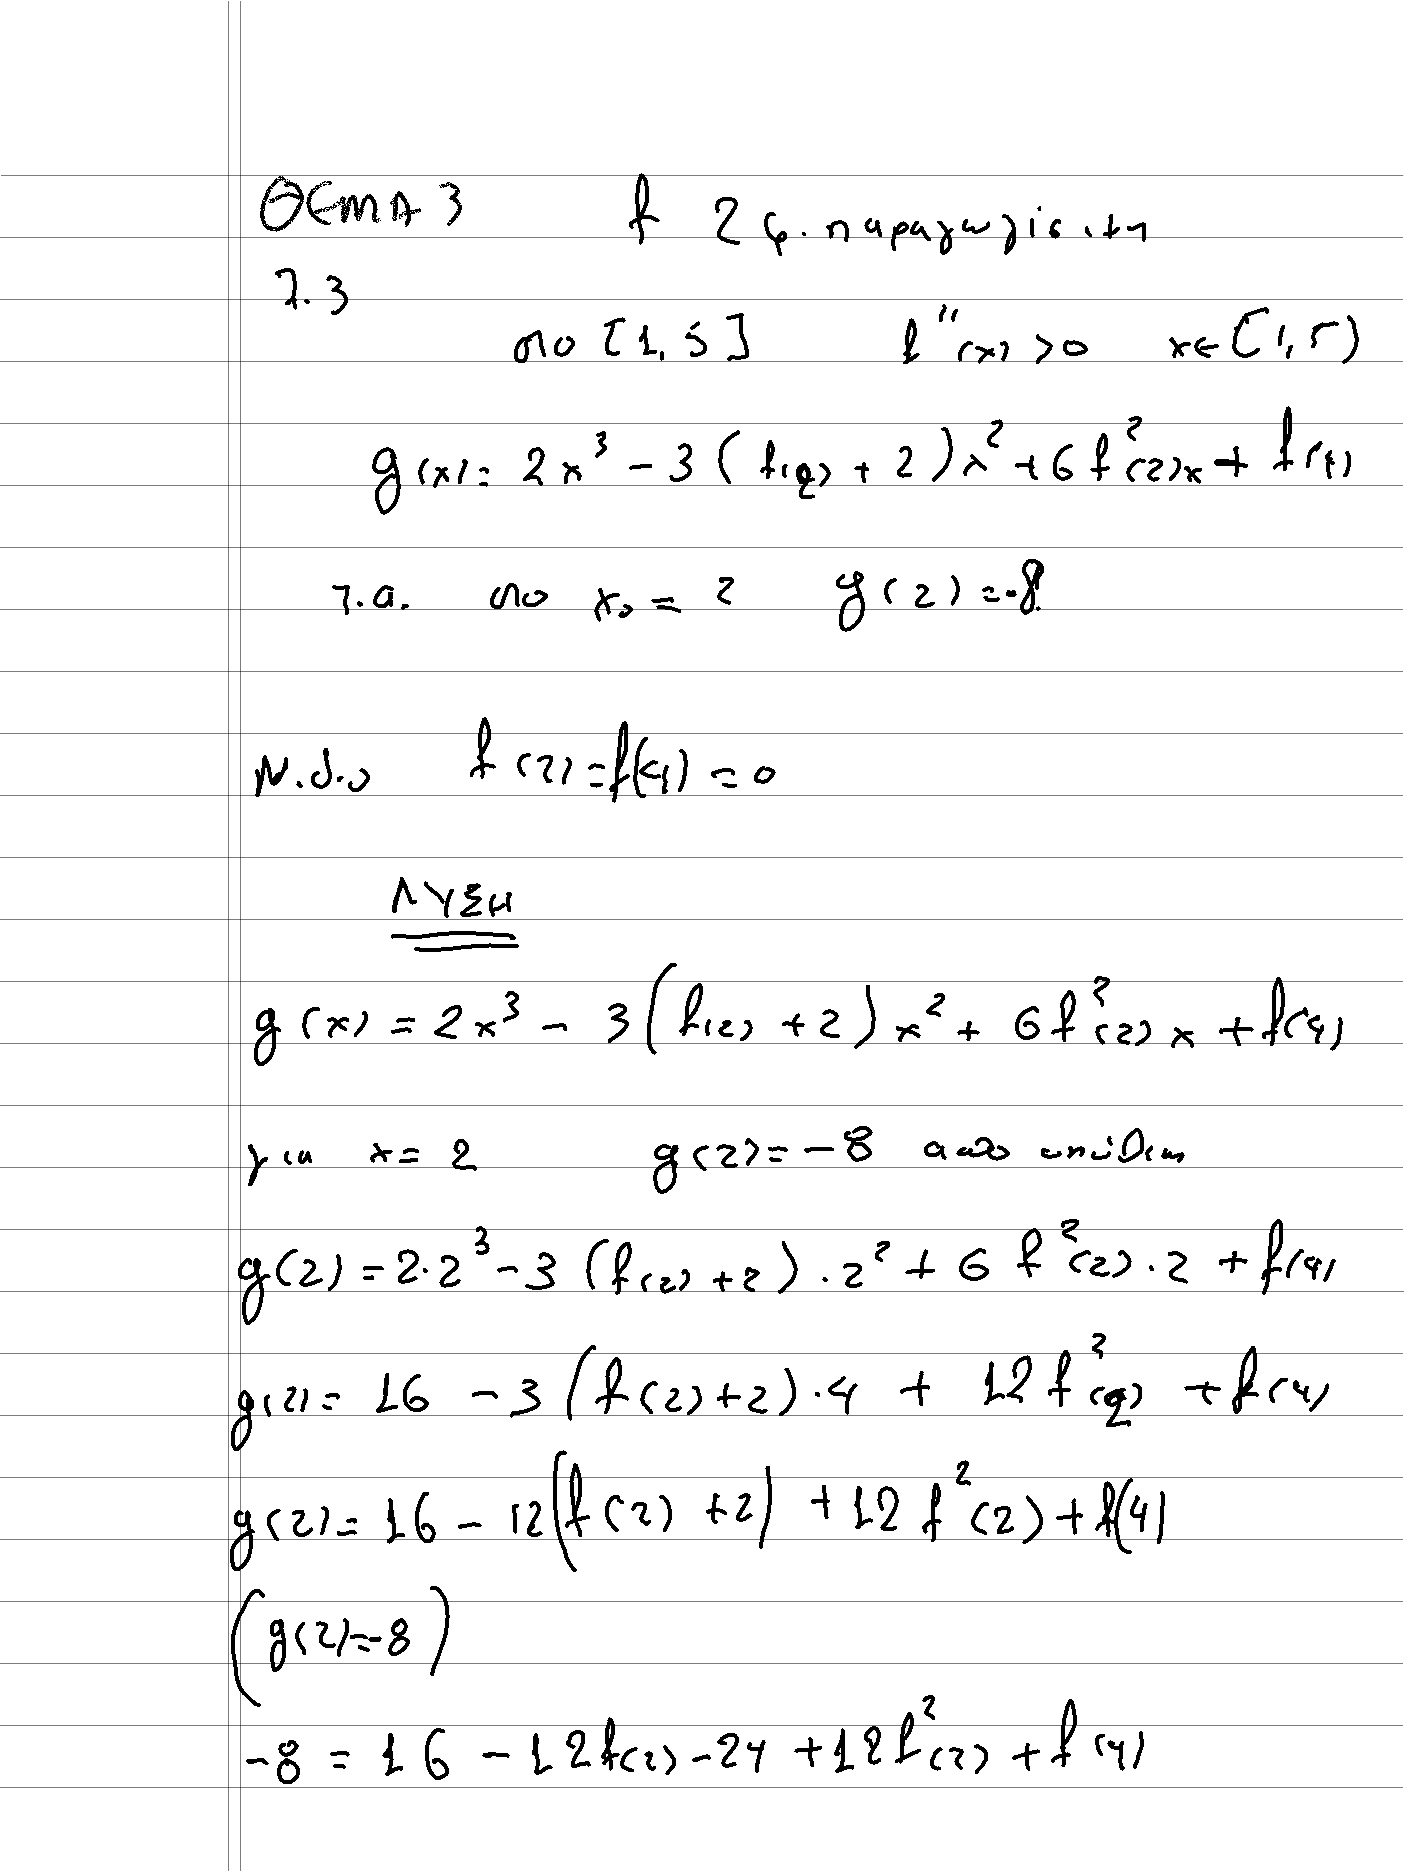 ΘΕΜΑ 3 f 2 φ. παραγωγίσιμη
7.3
στο [1, 5] f''(x) > 0 x ∈ [1, 5)
g(x) = 2x³ - 3(f(2) + 2)x² + 6f²(2)x + f(4)
τ.α. στο x₀ = 2 g(2) = -8
Ν.δ.ο f(2) = f(4) = 0
ΛΥΣΗ
g(x) = 2x³ - 3(f(2) + 2)x² + 6f²(2)x + f(4)
για x = 2 g(2) = -8 από υπόθεση
g(2) = 2·2³ - 3(f(2) + 2)·2² + 6f²(2)·2 + f(4)
g(2) = 16 - 3(f(2) + 2)·4 + 12f²(2) + f(4)
g(2) = 16 - 12(f(2) + 2) + 12f²(2) + f(4)
(g(2) = -8)
-8 = 16 - 12f(2) - 24 + 12f²(2) + f(4)